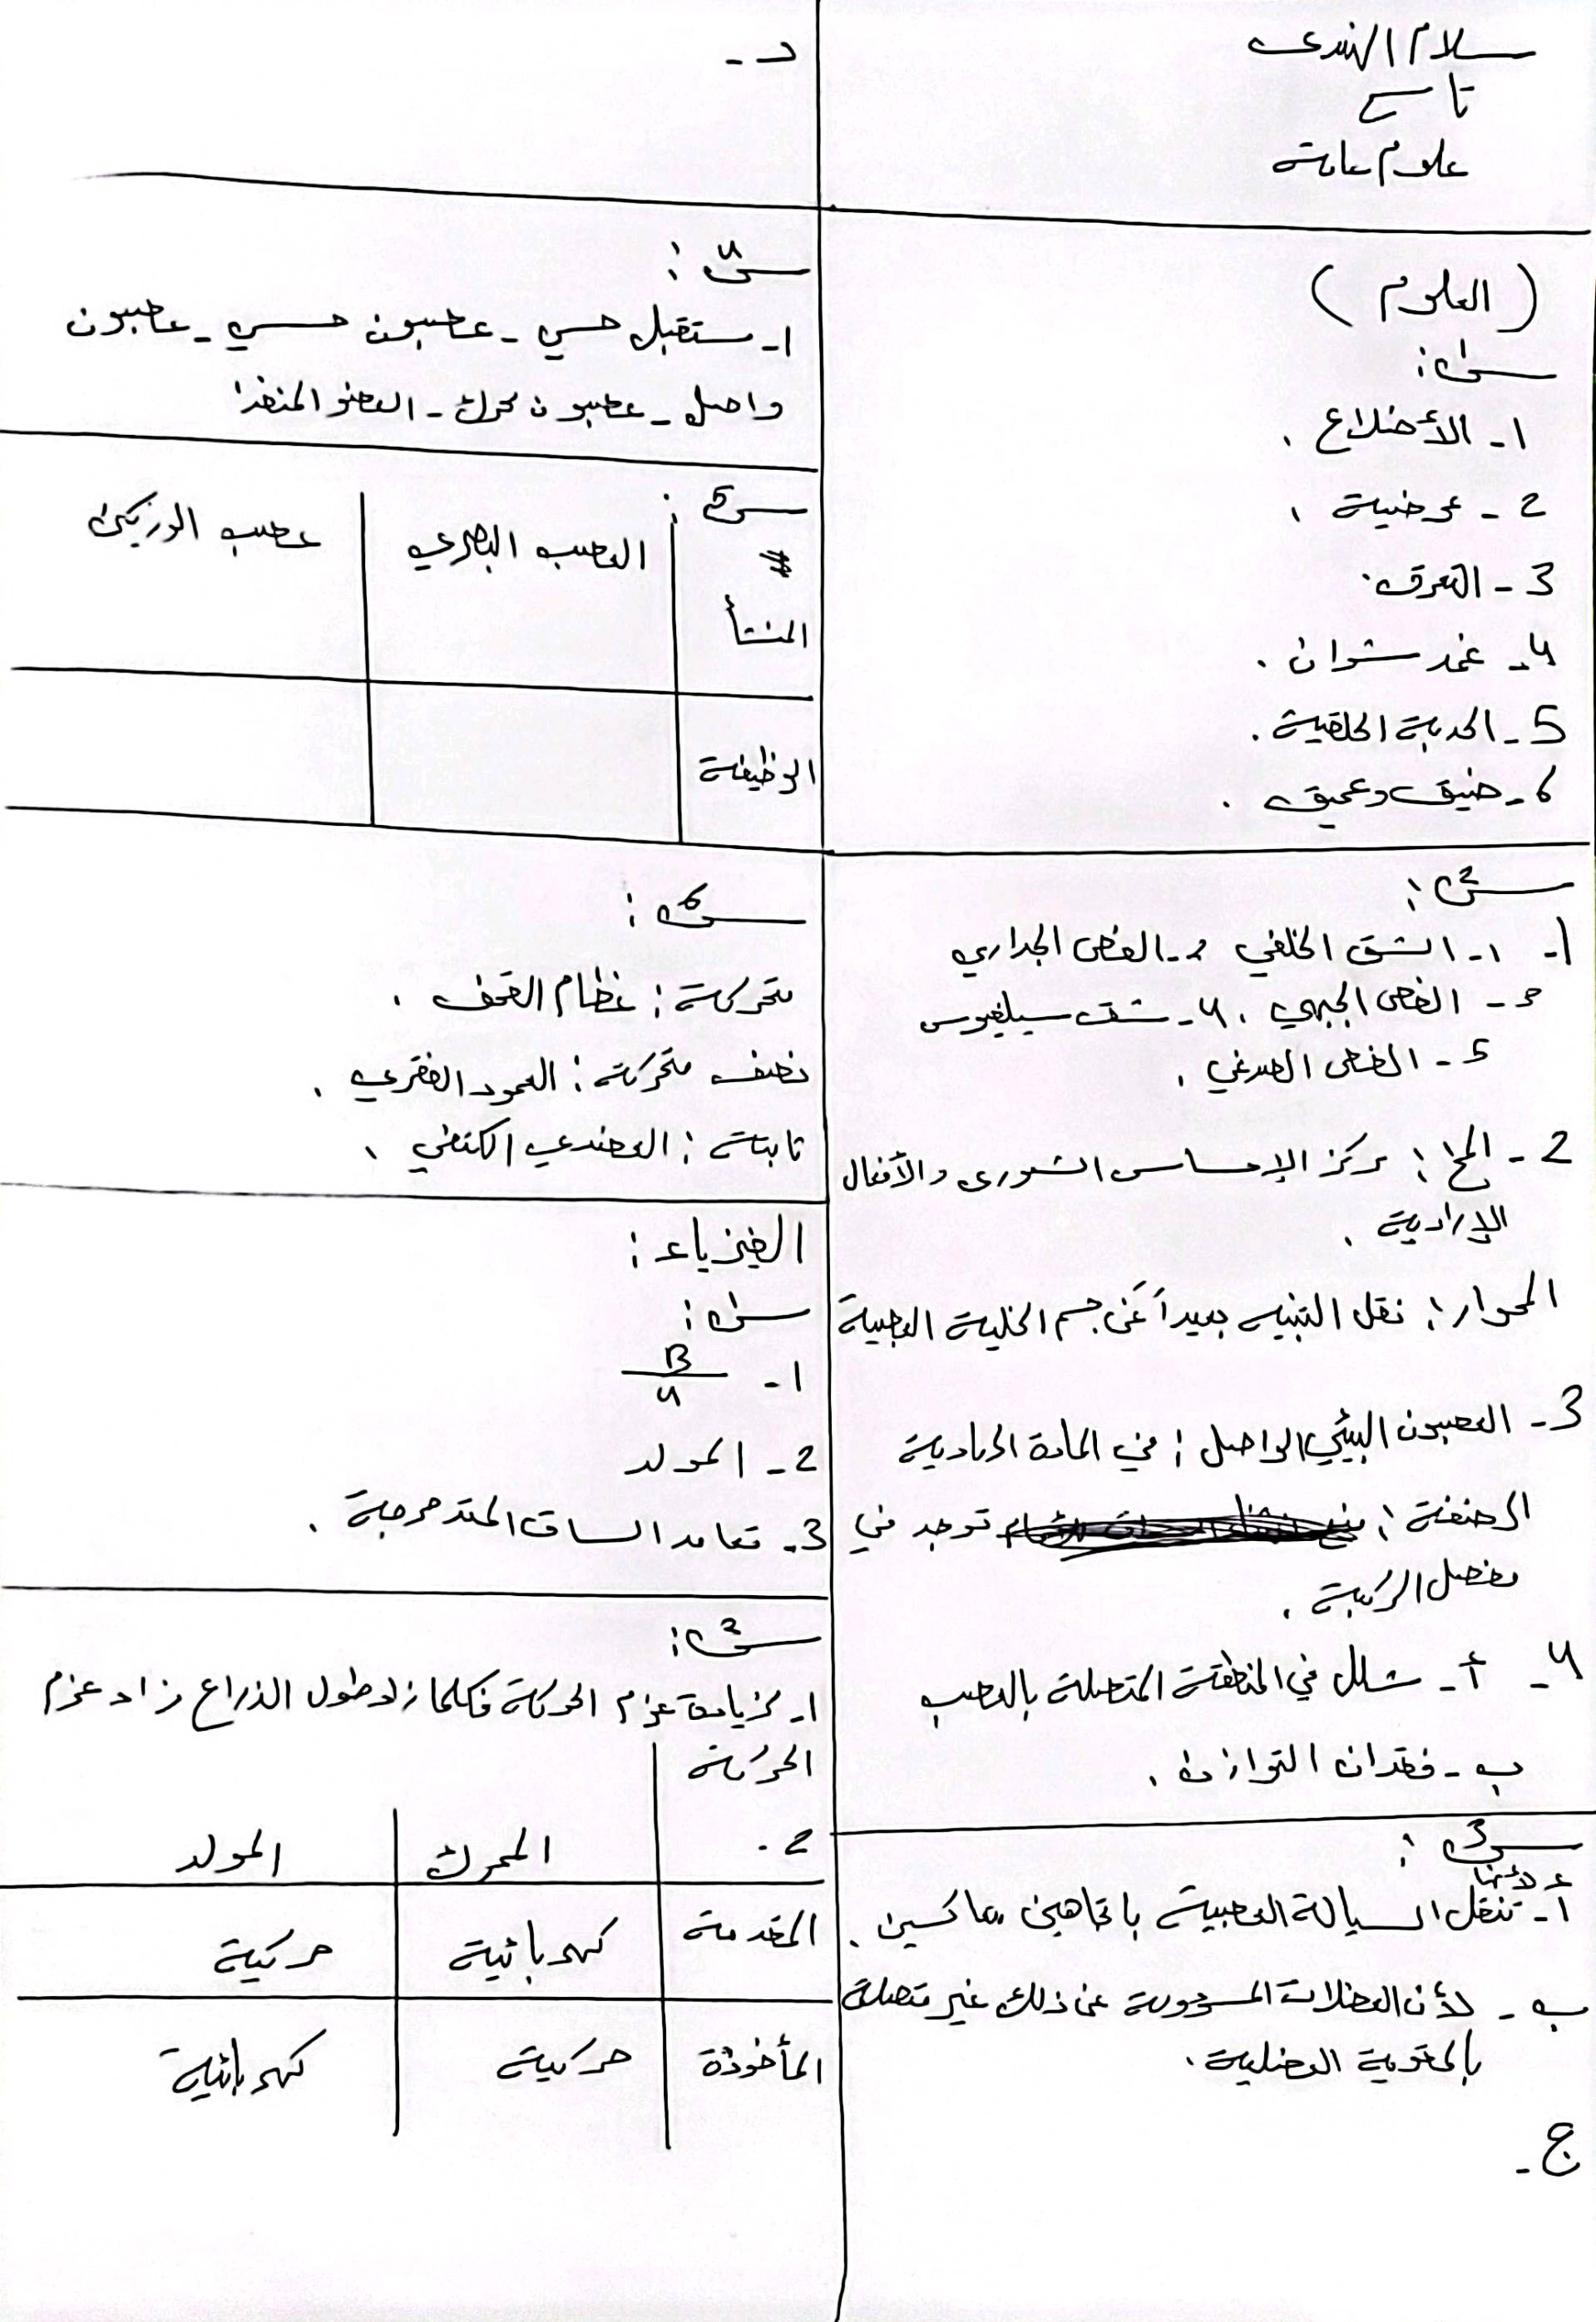 سلام الهندي
تاسع
علوم عامة
(العلوم)
س1:
1- الأضلاع.
2- عرضية.
3- التعرق.
4- غمد شوان.
5- الحدبة الحلقية.
6- ضيق وعميق.
س2:
1- 1- الشق الخلفي 2- الفص الجداري
3- الفص الجبهي. 4- شق سيلفيوس
5- الفص الصدغي.
2- المخ: مركز الإحساس الشعوري والأفعال
الإرادية.
المحوار: نقل التنبيه بعيداً عن جسم الخلية العصبية
3- العصبون البيني الواصل: في المادة الرمادية
الرضفة: توجد في
مفصل الركبة.
4- أ- شلل في المنطقة المتصلة بالعصب
ب- فقدان التوازن.
س3:
أ- لأنها تنقل السيالة العصبية باتجاهين معاكسين.
ب- لأن العضلات المسؤولة عن ذلك غير متصلة
بالمقوية العضلية.
ج-
د-
س4:
1- مستقبل حسي - عصبون حسي - عصبون
واصل - عصبون محرك - العضو المنفذ
س5:
العصب البصري
عصب الوركي
المنشأ
الوظيفة
س6:
متحركة: عظام القحف.
نصف متحركة: العمود الفقري.
ثابتة: العضدي الكتفي.
الفيزياء:
س1:
1- B/4
2- المولد
3- تعامد الساق المتدحرجة.
س2:
1- لزيادة عزم الحركة فكلما زاد طول الذراع زاد عزم
الحركة
2- المحرك المولد
المقدمة كهربائية حركية
المأخوذة حركية كهربائية